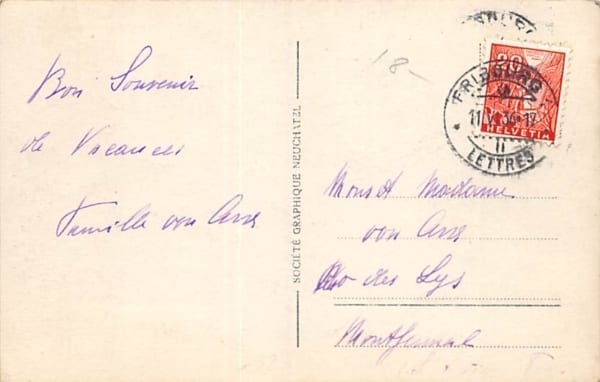 Bon Souvenir
de Vacances
Famille von Arx
SOCIÉTÉ GRAPHIQUE NEUCHATEL
18-
20
HELVETIA
FRIBOURG
LETTRES
II
Mons et Madame
von Arx
des Lys